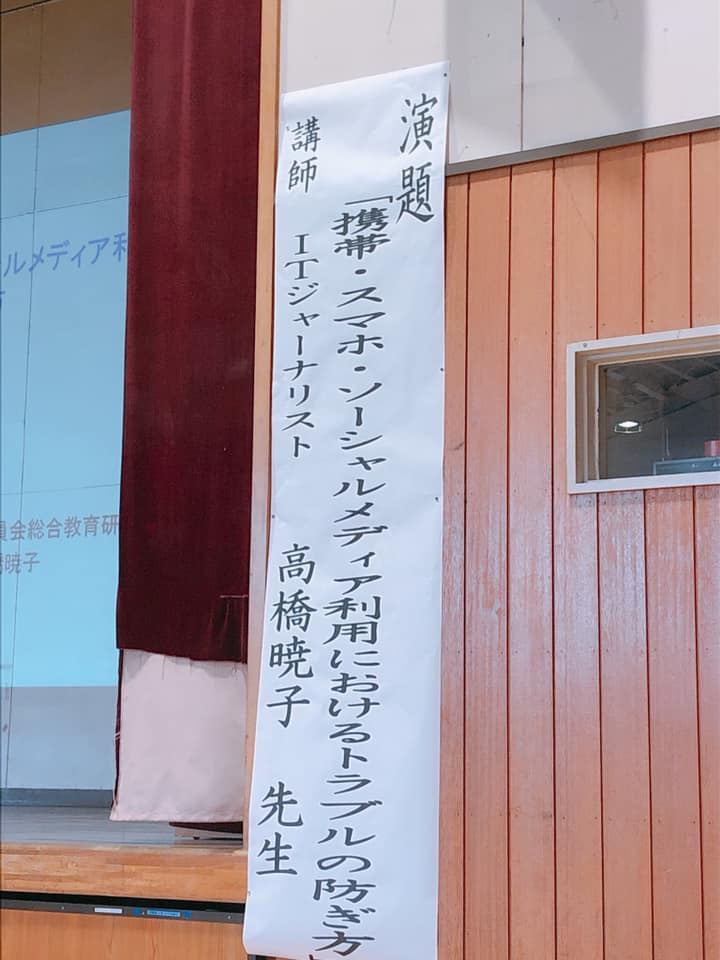 演題
「携帯・スマホ・ソーシャルメディア利用におけるトラブルの防ぎ方」
講師 ITジャーナリスト 高橋暁子 先生
ルメディア利
員会総合教育研
橋暁子